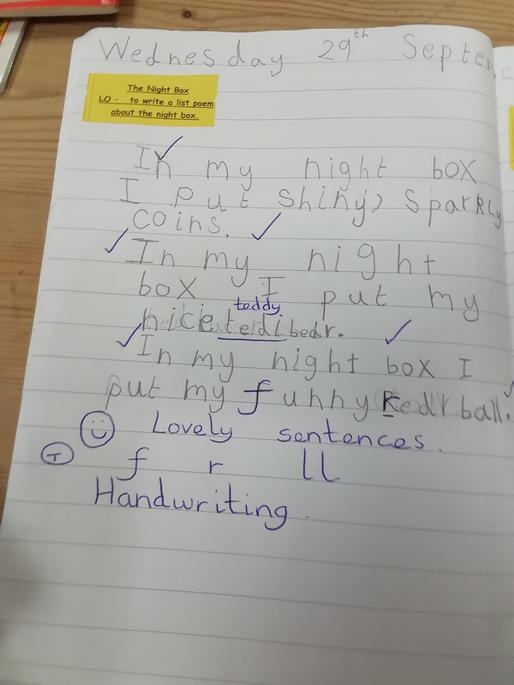 Wednesday 29th Septe
The Night Box
LO - to write a list poem
about the night box.
In my night box
I put shiny, sparkly
coins.
In my night
box I put my
teddy
nice tedi bear.
In my night box I
put my funny red ball.
Lovely sentences.
T f r ll
Handwriting.